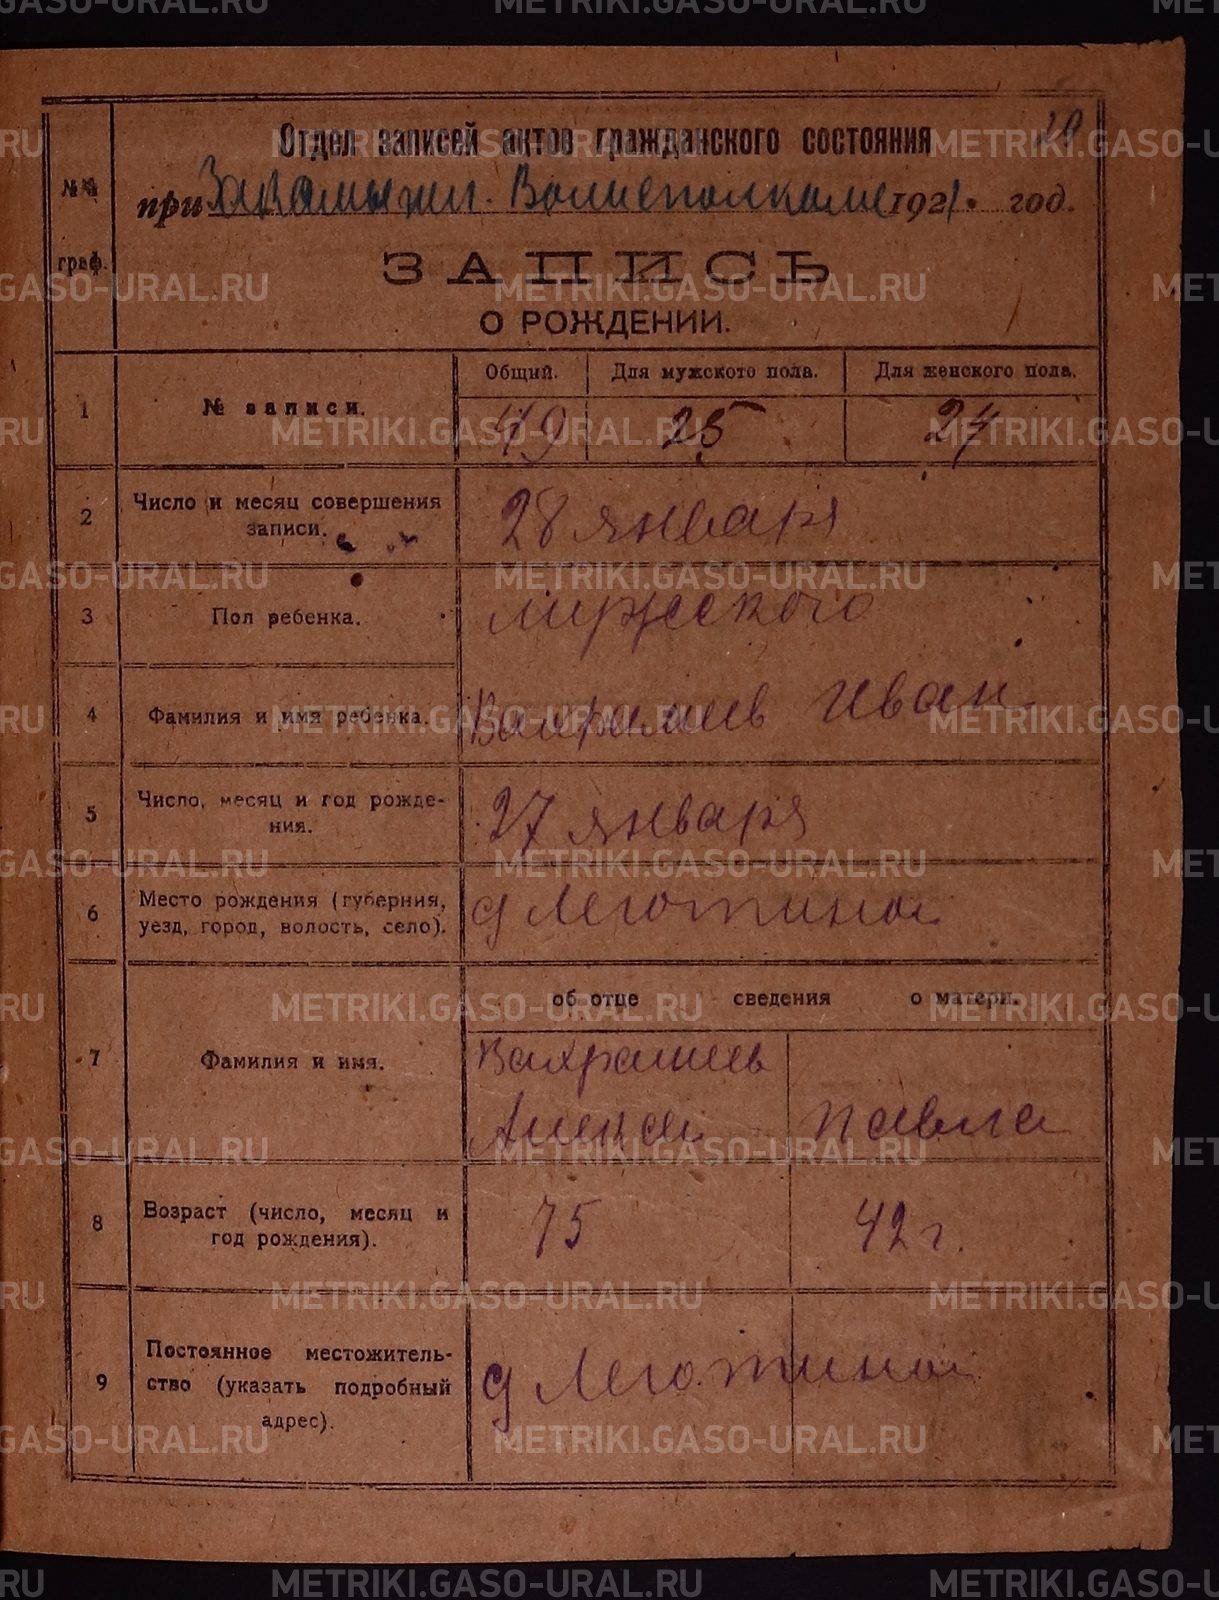 29
Отдел записей актов гражданского состояния
№№ граф.
при Волисполкоме 1921. год.
ЗАПИСЬ
О РОЖДЕНИИ.
Общий. Для мужского пола. Для женского пола.
1 № записи. 49 25 24
2 Число и месяц совершения записи. 28 января
3 Пол ребенка. мужского
4 Фамилия и имя ребенка. Вахрамеев Иван
5 Число, месяц и год рождения. 27 января
6 Место рождения (губерния, уезд, город, волость, село). д Леготиной
об отце сведения о матери.
7 Фамилия и имя. Вахрамеев
Алексей Павла
8 Возраст (число, месяц и год рождения). 75 42 г.
9 Постоянное местожительство (указать подробный адрес). д Леготиной
METRIKI.GASO-URAL.RU